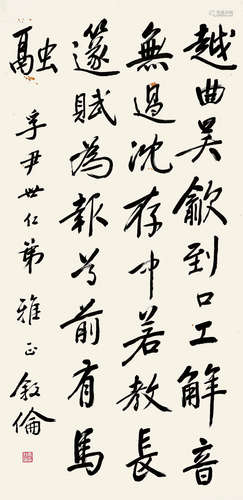 越曲吳歈到口工解音
無過沈存中若教長
篴賦為報尊前有馬
融
孚尹世仁弟 雅正 敘倫